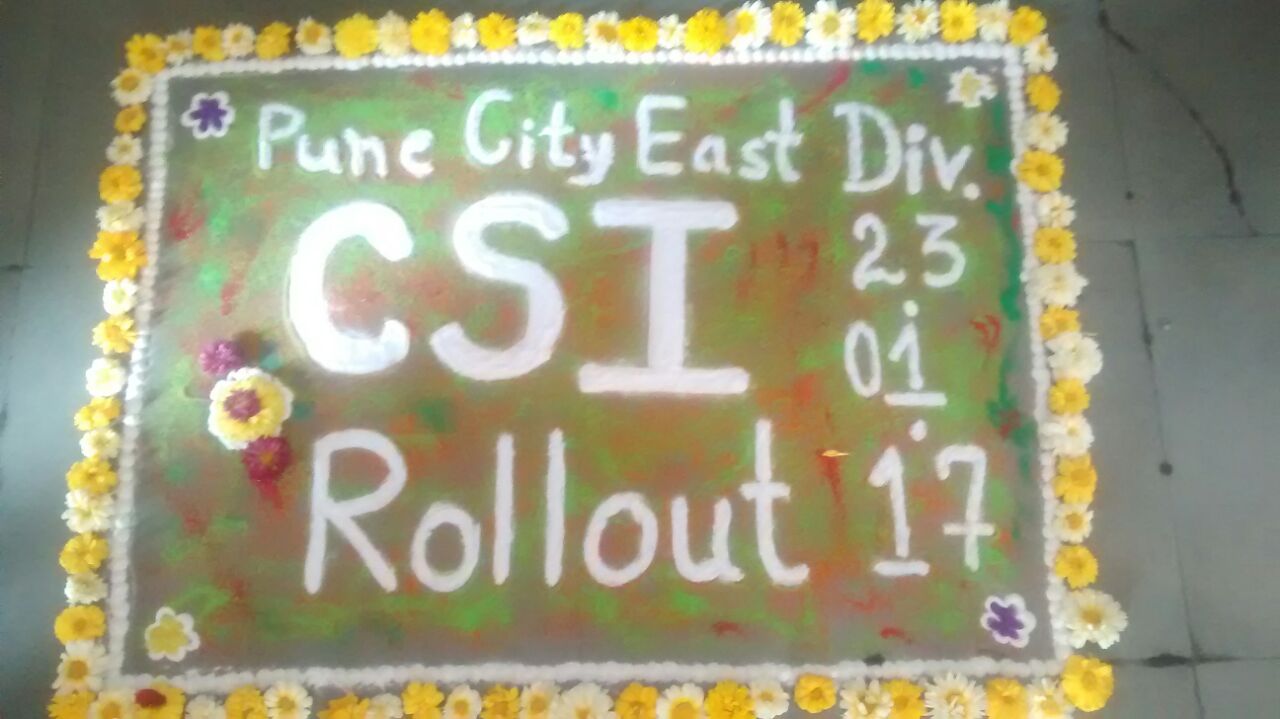 Pune City East Div.
CSI
Rollout
23
.
01
.
17